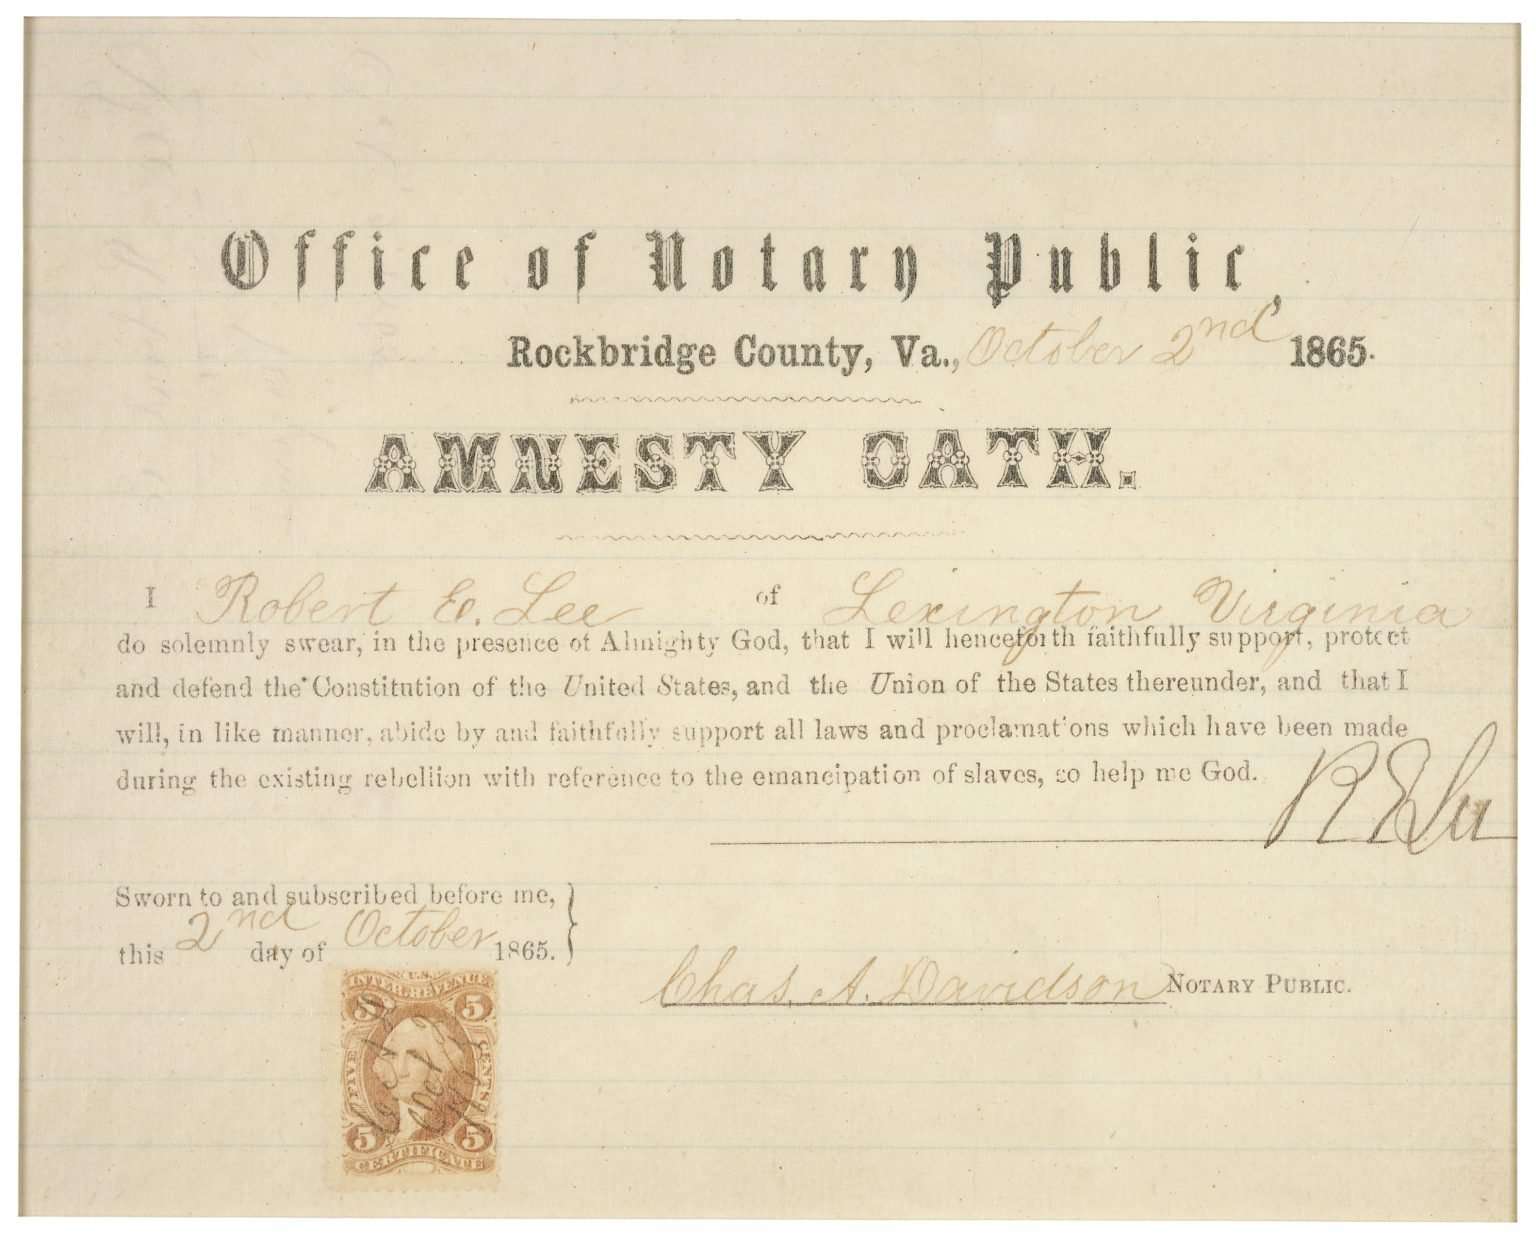 Office of Notary Public,
Rockbridge County, Va., October 2nd 1865.
AMNESTY OATH.
I Robert E. Lee of Lexington Virginia
do solemnly swear, in the presence of Almighty God, that I will henceforth faithfully support, protect
and defend the Constitution of the United States, and the Union of the States thereunder, and that I
will, in like manner, abide by and faithfully support all laws and proclamations which have been made
during the existing rebellion with reference to the emancipation of slaves, so help me God.
R E Lee
Sworn to and subscribed before me,
this 2nd day of October 1865.
Chas. A. Davidson NOTARY PUBLIC.
U.S.
INTER. REVENUE
5 5
FIVE CENTS
5 5
CERTIFICATE